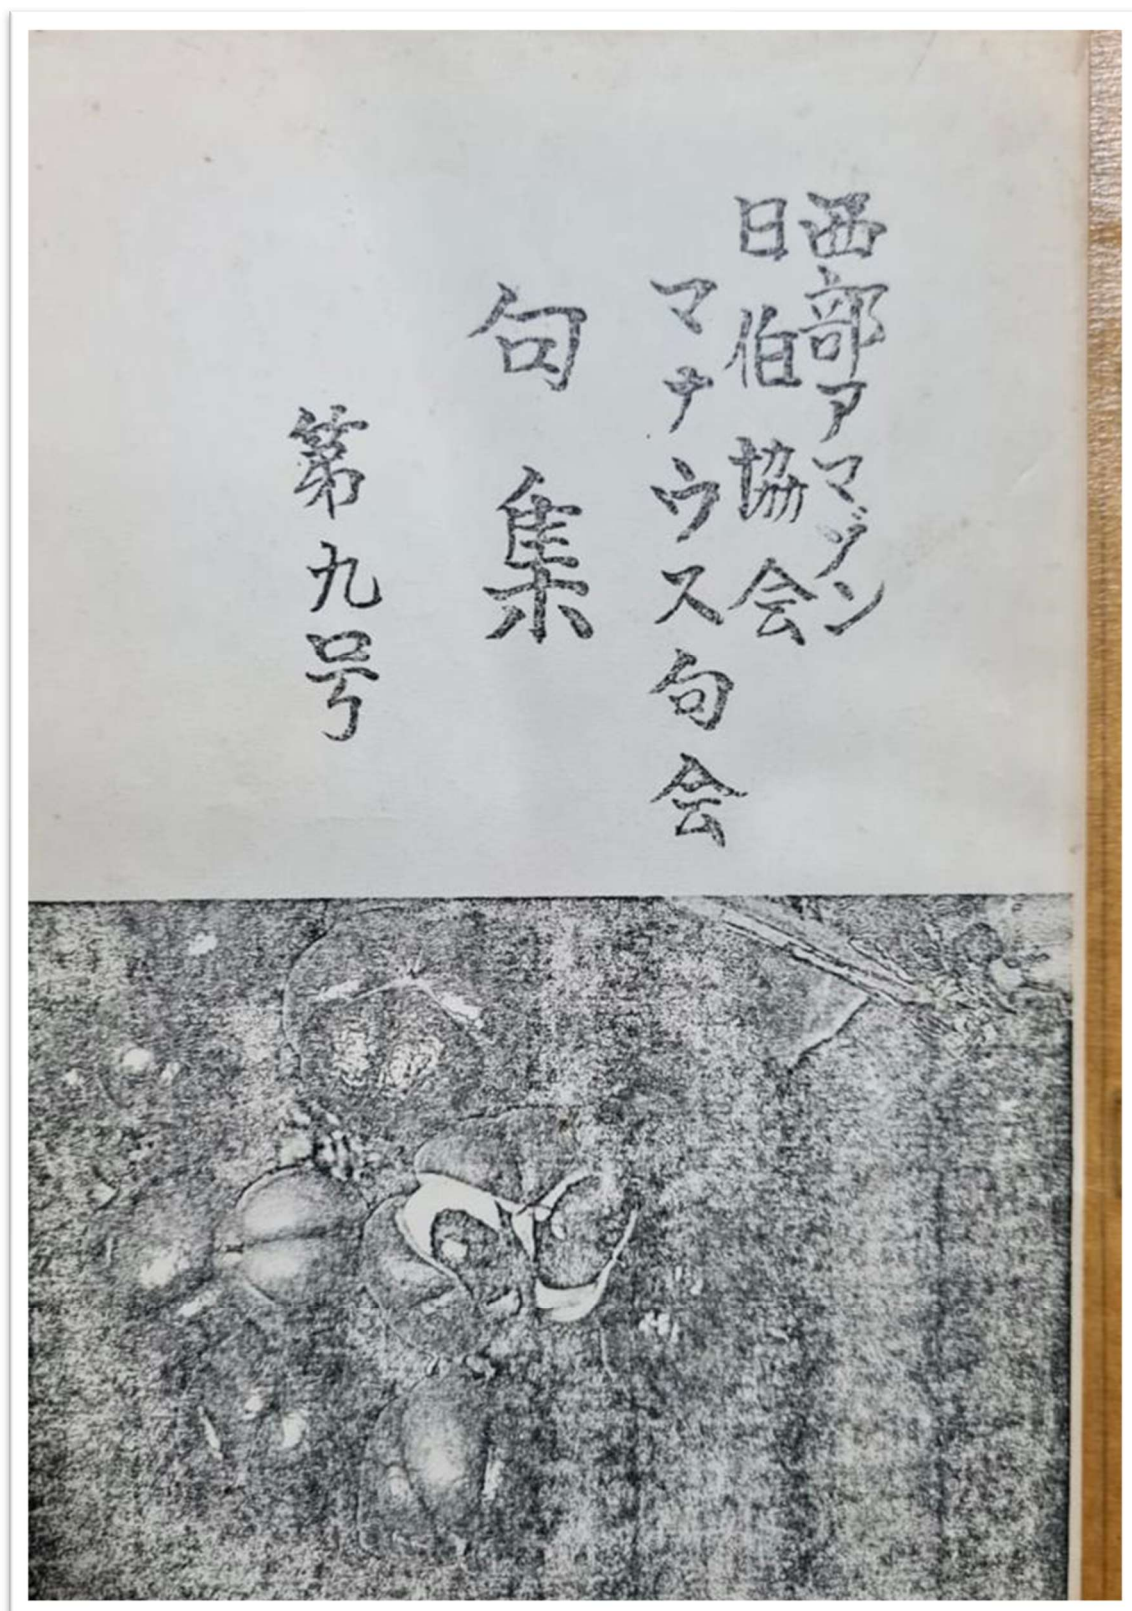 西部アマゾン
日伯協会
マナウス句会
句集
第九号